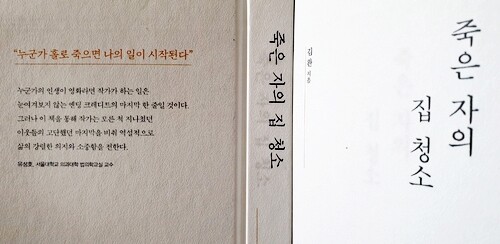 "누군가 홀로 죽으면 나의 일이 시작된다"
누군가의 인생이 영화라면 작가가 하는 일은
눈여겨보지 않는 엔딩 크레디트의 마지막 한 줄일 것이다.
그러나 이 책을 통해 작가는 모른 척 지나쳤던
이웃들의 고단했던 마지막을 비춰 역설적으로
삶의 강렬한 의지와 소중함을 전한다.
유성호, 서울대학교 의과대학 법의학교실 교수
죽은 자의 집 청소
김완 지음
죽은 자의
집 청소